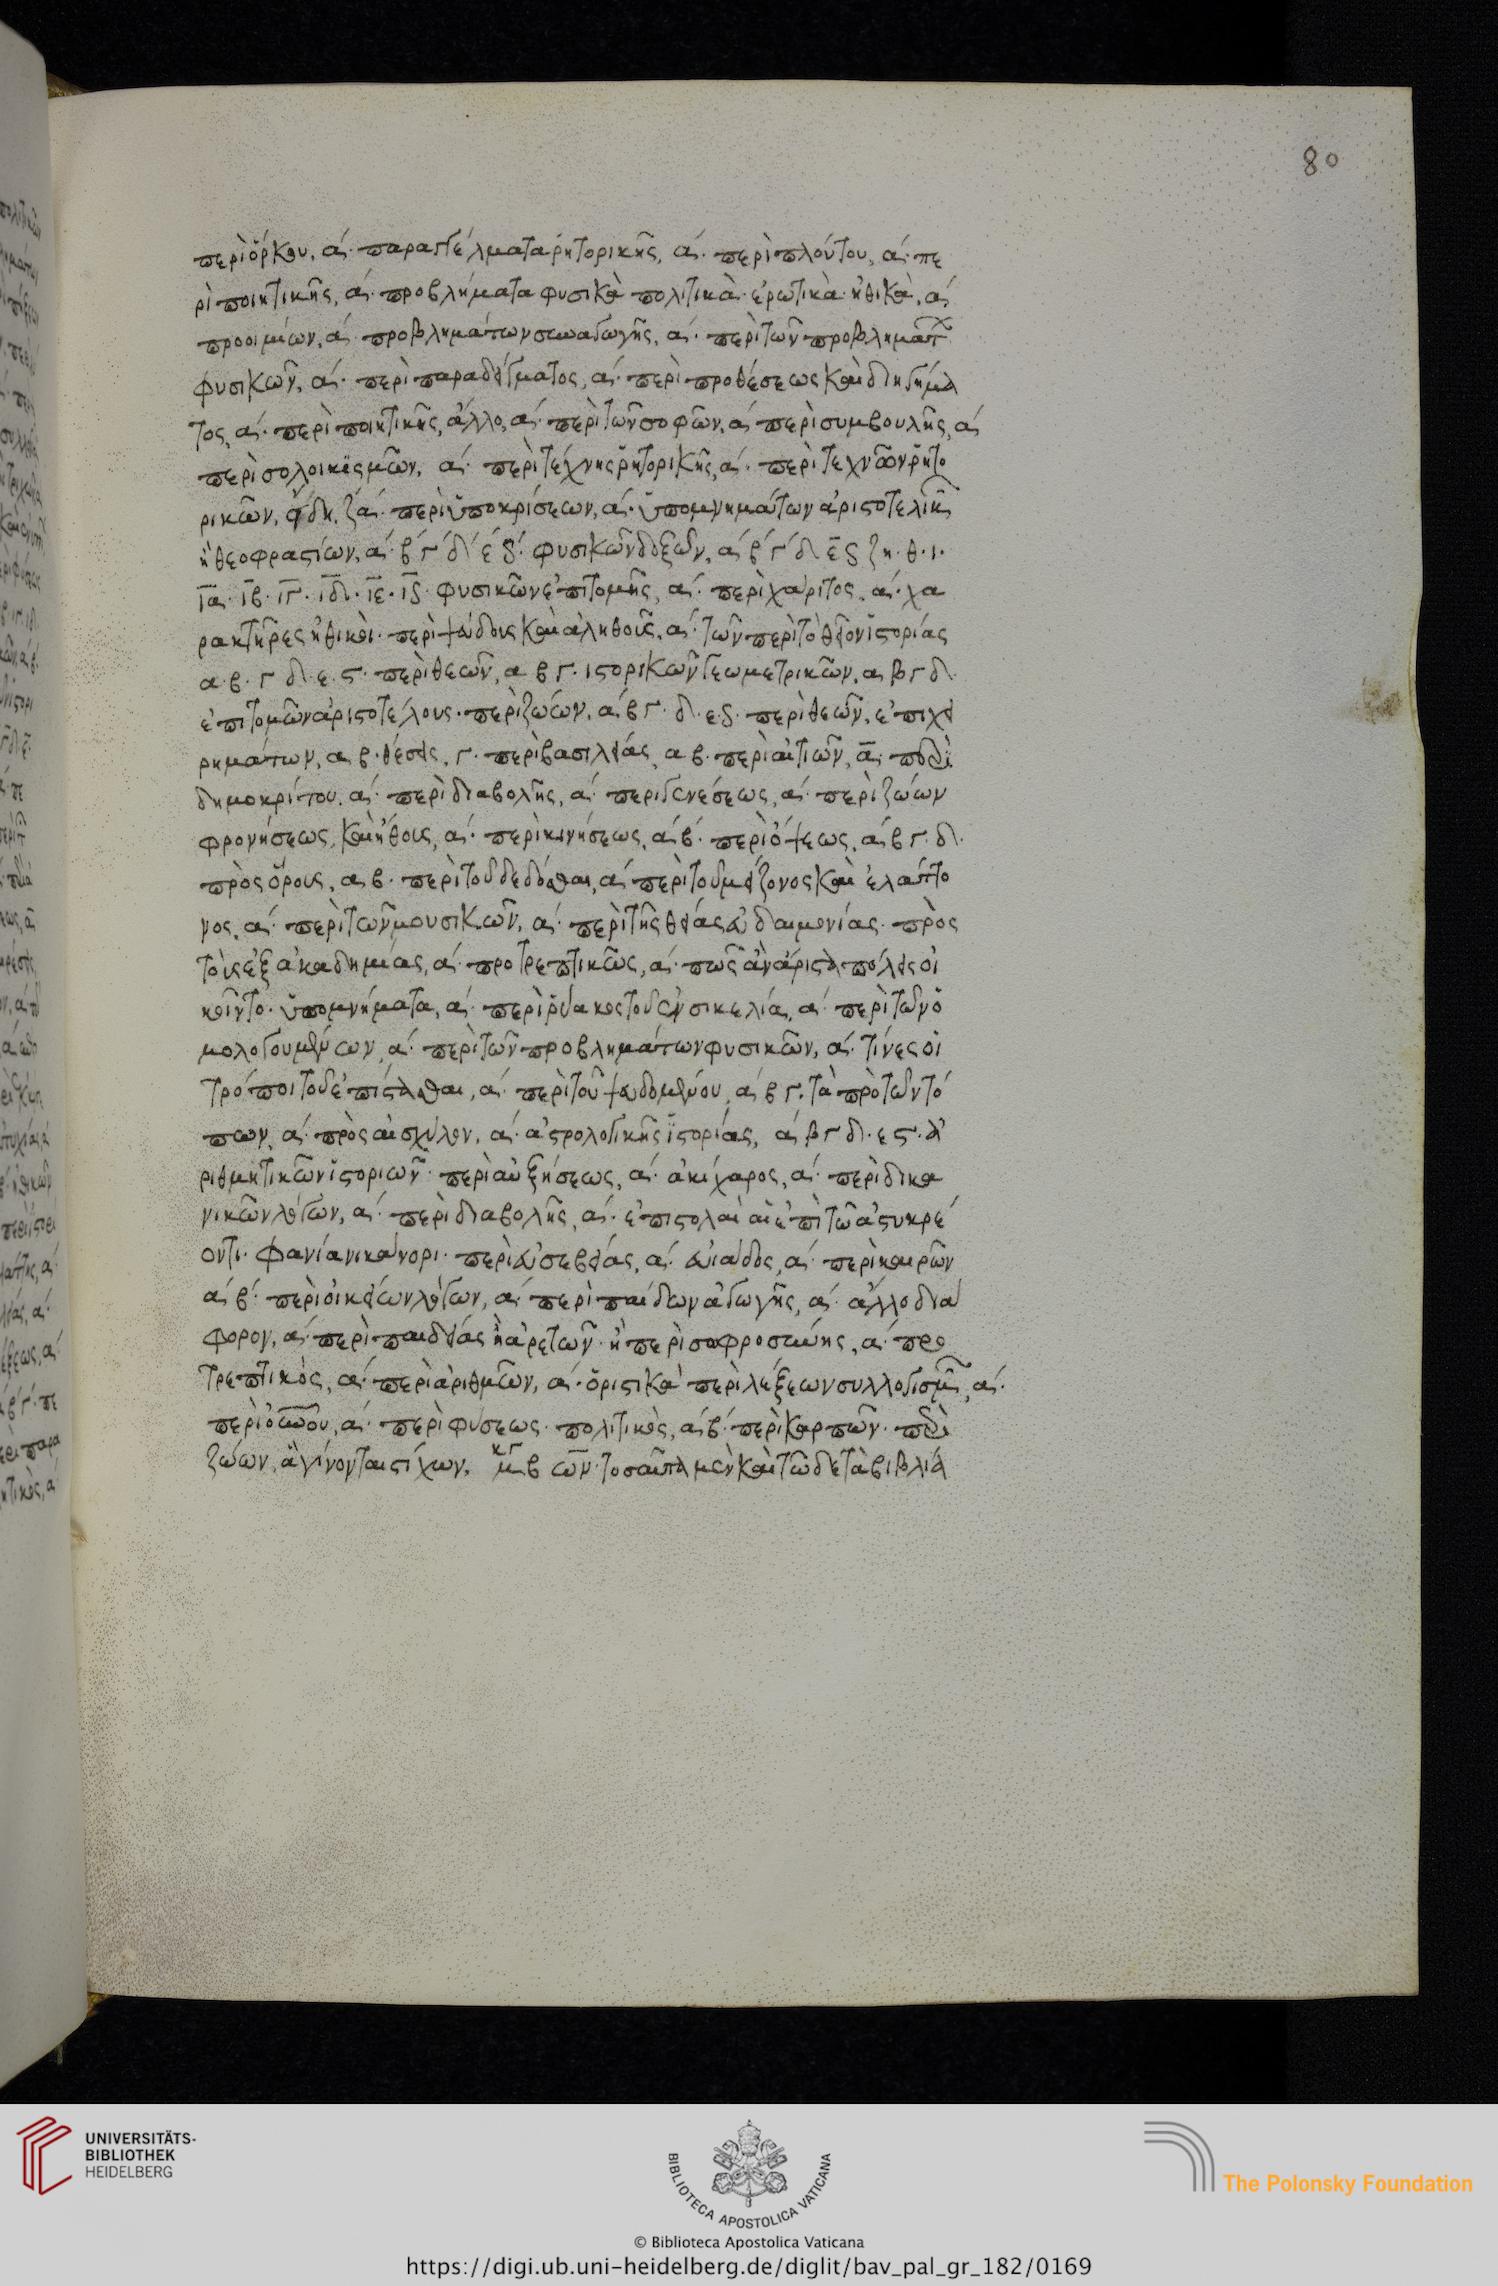 80
περὶ ὅρκου, α΄· παραγγέλματα ῥητορικῆς, α΄· περὶ πλούτου, α΄· πε
ρὶ ποιητικῆς, α΄· προβλήματα φυσικὰ πολιτικὰ· ἐρωτικὰ· ἠθικὰ, α΄
προοιμίων, α΄ προβλημάτων συναγωγῆς, α΄· περὶ τῶν προβλημάτ
φυσικῶν, α΄· περὶ παραδείγματος, α΄· περὶ προθέσεως καὶ διηγήμα
τος, α΄· περὶ ποιητικῆς, ἄλλο, α΄· περὶ τῶν σοφῶν, α΄ περὶ συμβουλῆς, α΄
περὶ σολοικισμῶν, α΄· περὶ τέχνης ῥητορικῆς, α΄· περὶ τεχνῶν ῥητο
ρικῶν, εἴδη, ζα΄· περὶ ὑποκρίσεων, α΄· ὑπομνημάτων ἀριστοτελικ
ἢ θεοφραστίων, α΄· β΄ γ΄ δ΄ ε΄ ϛ΄· φυσικῶν δοξῶν, α΄ β΄ γ΄ δ ε ϛ ζ η· θ· ι·
ια· ιβ· ιγ· ιδ· ιε· ιϛ· φυσικῶν ἐπιτομῆς, α΄· περὶ χάριτος, α΄· χα
ρακτῆρες ἠθικοὶ· περὶ ψεύδους καὶ ἀληθοῦς, α΄· τῶν περὶ τὸ θεῖον ἱστορίας
α· β· γ δ· ε· ϛ· περὶ θεῶν, α β γ· ἱστορικῶν γεωμετρικῶν, α β γ δ·
ἐπιτομῶν ἀριστοτέλους· περὶ ζώων, α΄ β γ· δ· ε· ϛ· περὶ θεῶν, ἐπιχει
ρημάτων, α β· θέσεις, γ· περὶ βασιλείας, α β· περὶ αἰτιῶν, α· περὶ
δημοκρίτου, α΄· περὶ διαβολῆς, α΄· περὶ γενέσεως, α΄· περὶ ζώων
φρονήσεως, καὶ ἤθους, α΄· περὶ κινήσεως, α΄ β΄· περὶ ὄψεως, α΄ β γ· δ·
πρὸς ὅρους, α β· περὶ τοῦ δεδόσθαι, α΄ περὶ τοῦ μείζονος καὶ ἐλάττο
νος, α΄· περὶ τῶν μουσικῶν, α΄· περὶ τῆς θείας εὐδαιμονίας· πρὸς
τοὺς ἐξ ἀκαδημίας, α΄· προτρεπτικῶς, α΄· πῶς ἂν ἄριστα πόλεις οἰ
κοῖντο· ὑπομνήματα, α΄· περὶ ῥύακος τοῦ ἐν σικελία, α΄· περὶ τῶν ὁ
μολογουμένων, α΄· περὶ τῶν προβλημάτων φυσικῶν, α΄· τίνες οἱ
τρόποι τοῦ ἐπίστασθαι, α΄· περὶ τοῦ ψευδομένου, α΄ β γ· τὰ πρὸ τῶν τό
πων, α΄· πρὸς αἰσχύλον, α΄· ἀστρολογικῆς ἱστορίας, α΄ β γ δ· ε ϛ· ἀ
ριθμητικῶν ἱστοριῶν· περὶ αὐξήσεως, α΄· ἀκίχαρος, α΄· περὶ δικα
νικῶν λόγων, α΄· περὶ διαβολῆς, α΄· ἐπιστολαὶ αἱ ἐπὶ τῶ ἀστυκρέ
οντι· φανία νικάνορι· περὶ εὐσεβείας, α΄· εὐιάδος, α΄· περὶ καιρῶν
α΄ β΄· περὶ οἰκείων λόγων, α΄· περὶ παίδων ἀγωγῆς, α΄· ἄλλο διά
φορον, α΄· περὶ παιδείας ἢ ἀρετῶν· ἢ περὶ σωφροσύνης, α΄· προ
τρεπτικὸς, α΄· περὶ ἀριθμῶν, α΄· ὁριστικὰ περὶ λέξεων συλλογισμ, α΄·
περὶ οὐνου, α΄· περὶ φύσεως· πολιτικὸς, α΄ β΄· περὶ καρπῶν· περὶ
ζώων, ἃ γίνονται στίχων, μβ ων· τοσαῦτα μὲν καὶ τῶδε τὰ βιβλία
UNIVERSITÄTS-
BIBLIOTHEK
HEIDELBERG
BIBLIOTECA APOSTOLICA VATICANA
The Polonsky Foundation
© Biblioteca Apostolica Vaticana
https://digi.ub.uni-heidelberg.de/diglit/bav_pal_gr_182/0169